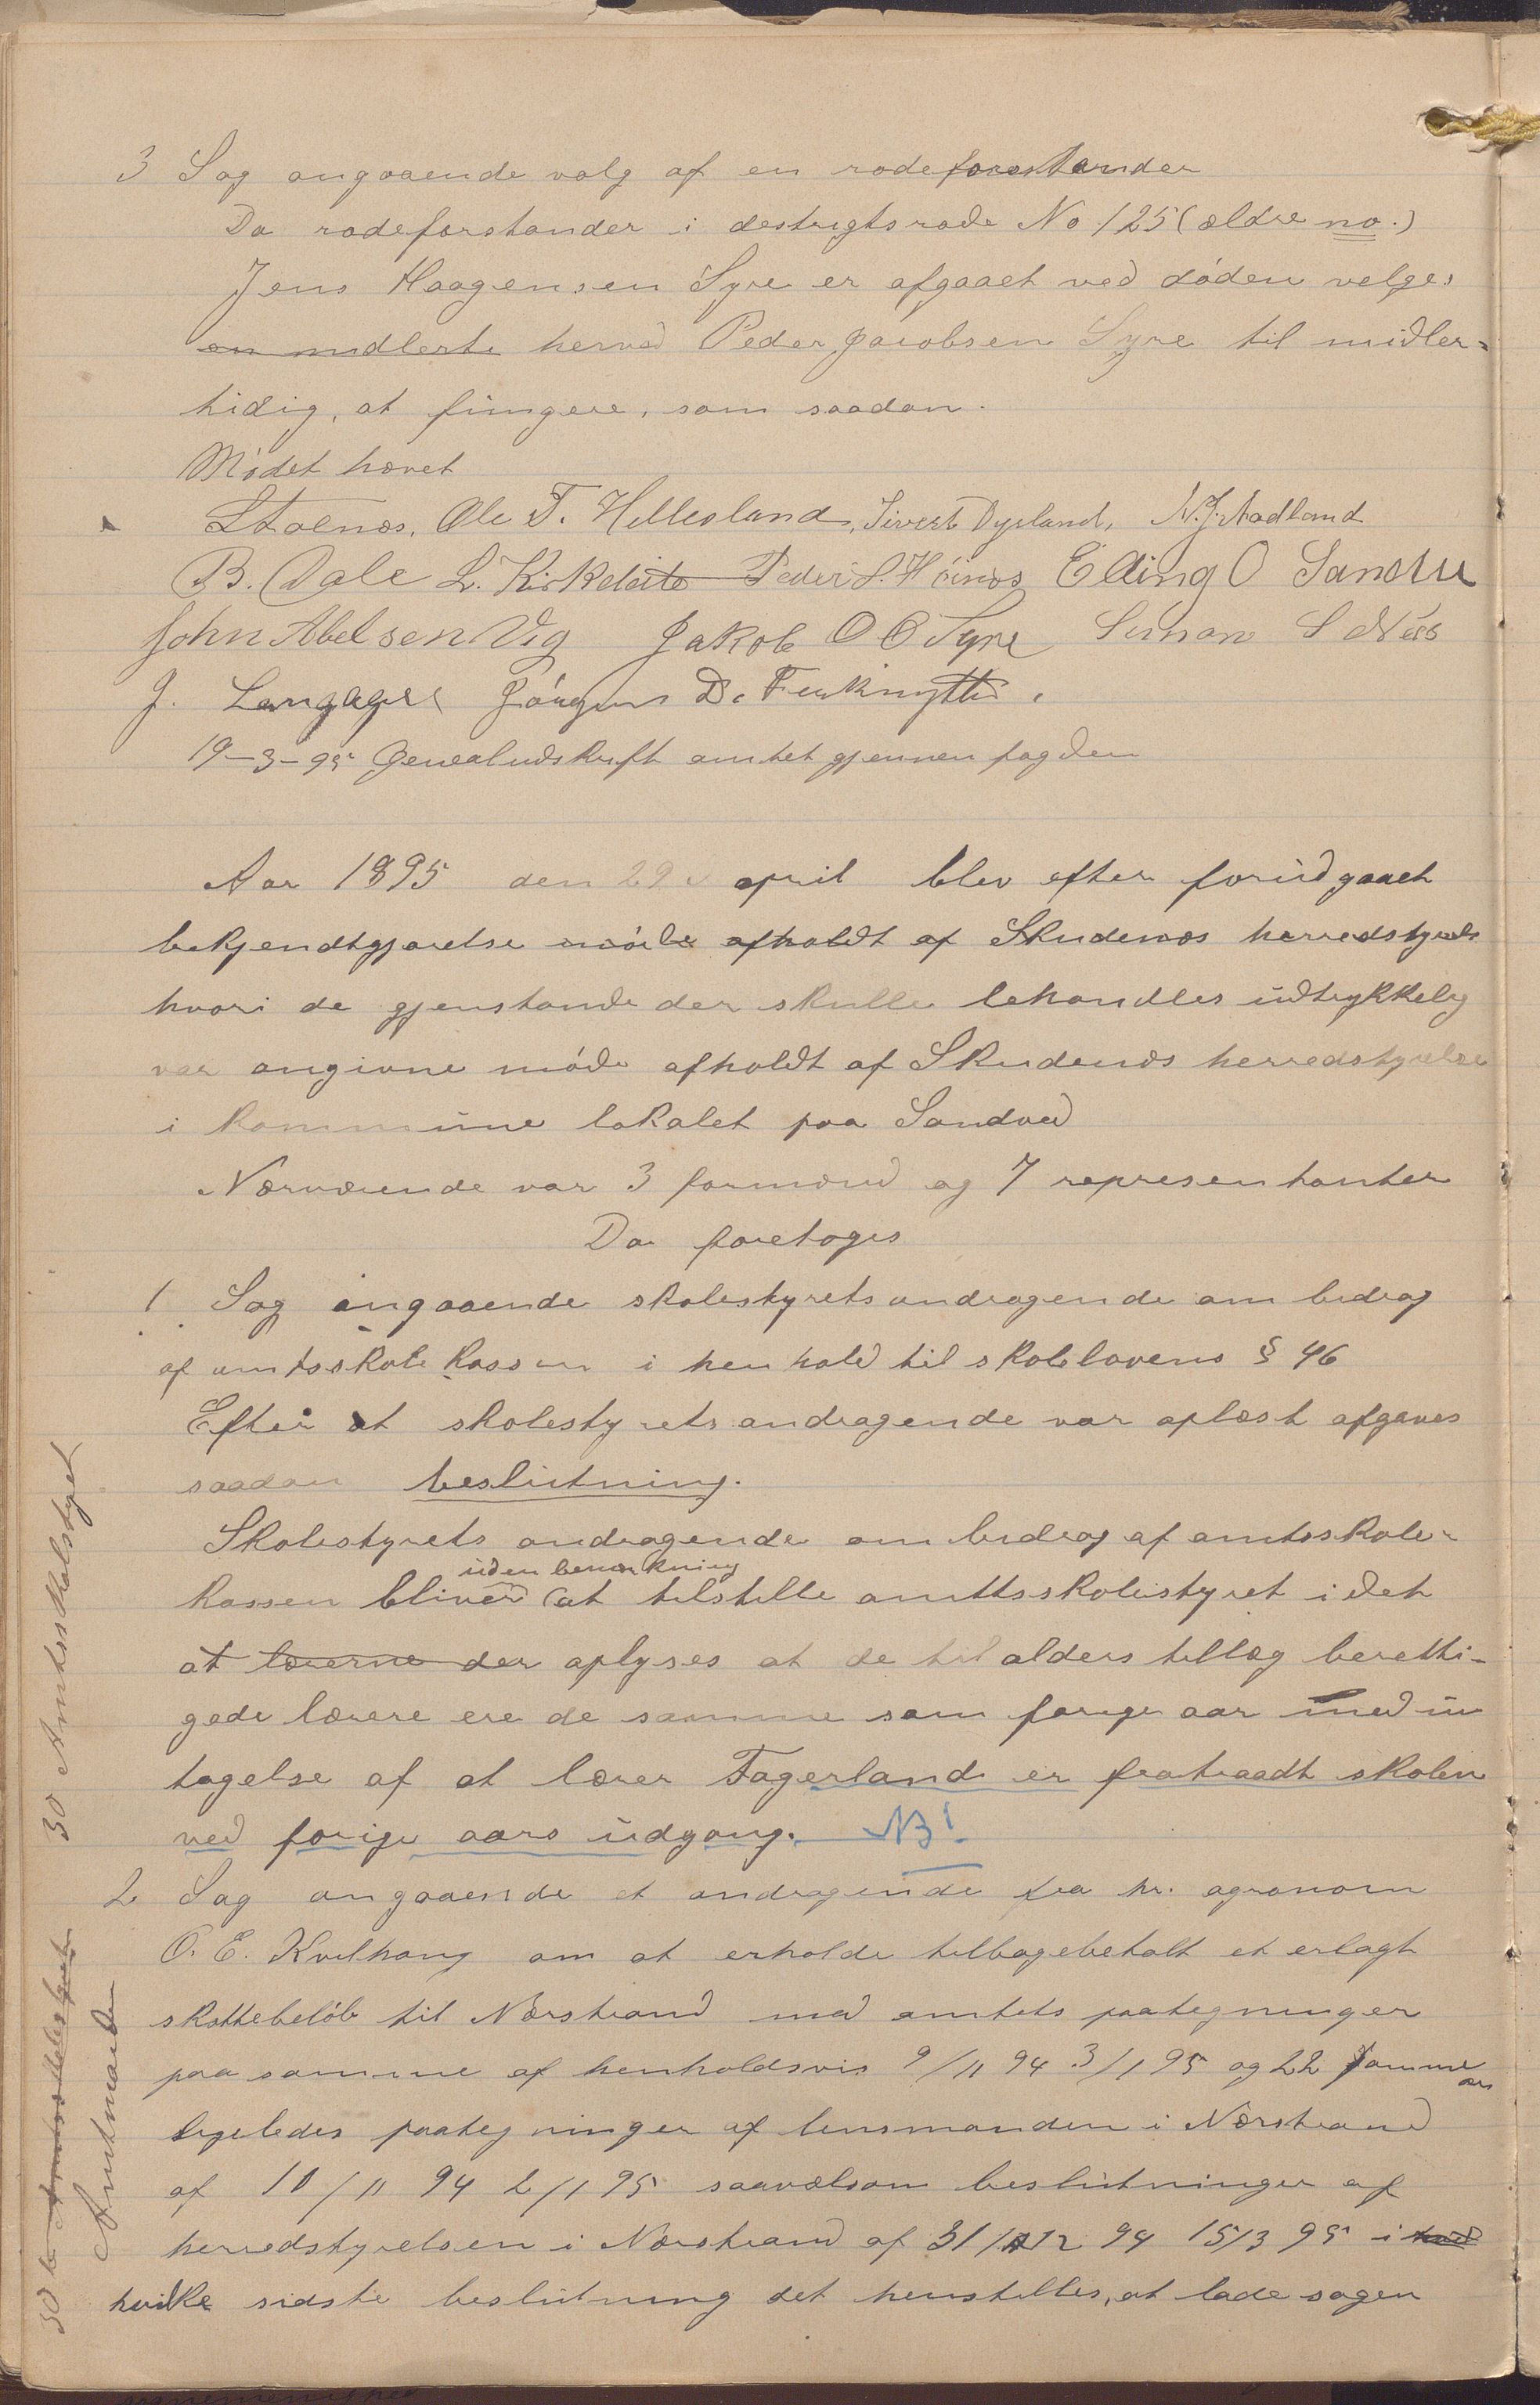 3 Sag angaaende valg af en rodeforstander
Da rodeforstander i destrigtsrode No 125 (ældre no.)
Jens Haagensen Syre er afgaaet ved døden velges
en midlerti herved Peder Jacobsen Syre til midler=
tidig, at fungere, som saadan.
Mødet hævet
Stoenæs, Ole T. Hillesland, Sivert Dysland, N. J. Aadland
B. Dale L. Kirkeleite Peder S. Høinæs Elling O Sandve
John Abelsen Vig Jakob O O Syre Simon S Næs
J. Langager Jørgen D. Ferkingstad.
19-3-95 Genealudskrift amtet gjennem fogden
Aar 1895 den 29 april blev efter forudgaaet
bekjendtgjørelse møde afholdt af Skudenæs herredstyrelse
hvori de gjenstande der skulle behandles udtrykkelig
var angivne møde afholdt af Skudenæs herredstyrelse
i kommune lokalet paa Sandved
Nærværende var 3 formænd og 7 representanter
Da foretoges
1 Sag angaaende skolestyrets andragende om bidrag
af amtsskolekassen i henhold til skolelovens § 46
Efter at skolestyrets andragende var oplæst afgaves
saadan beslutning.
Skolestyrets andragende om bidrag af amtsskole-
uden bemærkning
kassen bliver at tilstille amttsskolestyret idet
at lærerne der oplyses at de til alders tillæg beretti-
gede lærere ere de samme som forige aar med un
tagelse af at lærer Fagerland er fratraadt skolen
ved forige aars udgang. NB!
2 Sag angaaende et andragende fra hr. agronom
O. E. Kvilhaug om at erholde tilbagebetalt et erlagt
skattebeløb til Nærstrand med amtets paategninger
paa samme af henholdsvis 9/11 94 3/1 95 og 22 samme
ligeledes paategninger af lensmanden i Nærstrand
af 10/11 94 2/1 95 saavelsom beslutninger af
herredstyrelsen i Nærstrand af 31/12 94 15/3 95 i hvid
hvilke sidste beslutning det henstilles, at lade sagen
30 Amtsskolstyret
30 Amtmanden